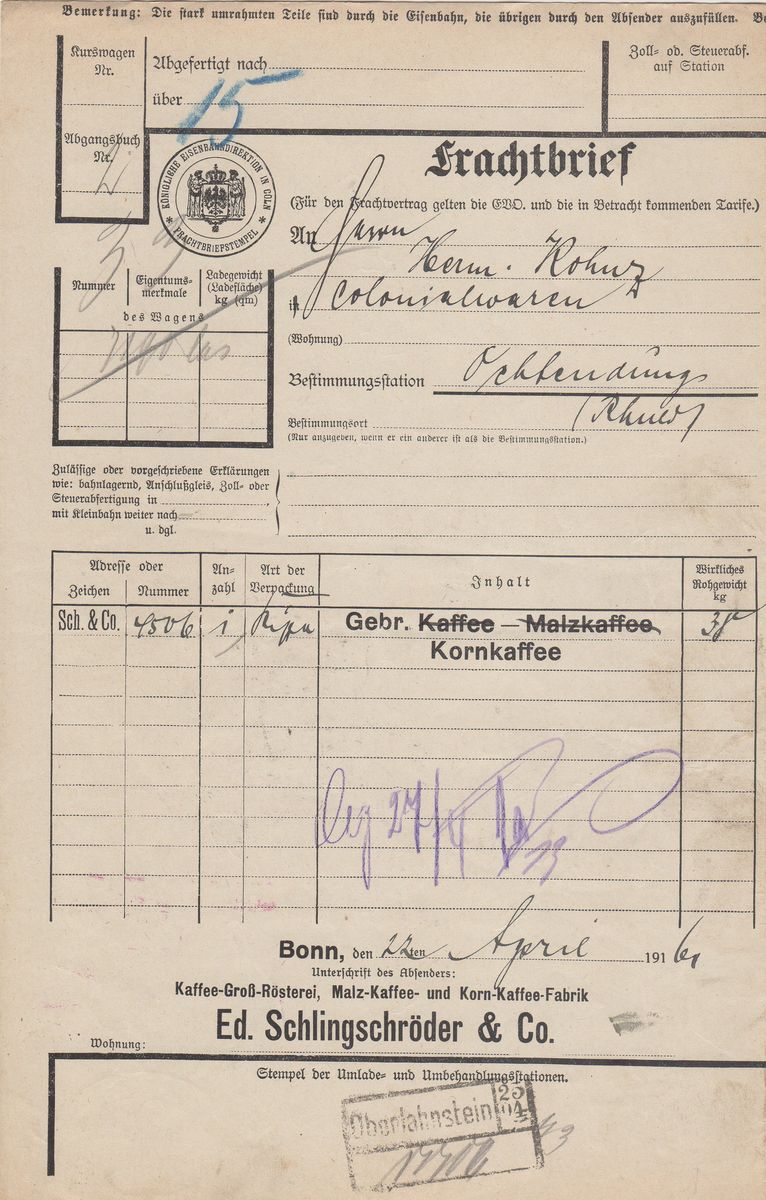 Bemerkung: Die stark umrahmten Teile sind durch die Eisenbahn, die übrigen durch den Absender auszufüllen.
Kurswagen
Nr.
Abgefertigt nach
über
15
Zoll- od. Steuerabf.
auf Station
Abgangsbuch
Nr.
KÖNIGLICHE EISENBAHNDIREKTION IN CÖLN
* FRACHTBRIEFSTEMPEL *
Frachtbrief
(Für den Frachtvertrag gelten die EVO. und die in Betracht kommenden Tarife.)
An Herrn
Herm. Kohnz
in Colonialwaren
Nummer
Eigentums-
merkmale
Ladegewicht
(Ladefläche)
kg (qm)
des Wagens
(Wohnung)
Bestimmungsstation Ochtendung
Bestimmungsort
(Nur anzugeben, wenn er ein anderer ist als die Bestimmungsstation.)
Zulässige oder vorgeschriebene Erklärungen
wie: bahnlagernd, Anschlußgleis, Zoll- oder
Steuerabfertigung in
mit Kleinbahn weiter nach
u. dgl.
Adresse oder
Zeichen
Nummer
An-
zahl
Art der
Verpackung
Inhalt
Wirkliches
Rohgewicht
kg
Sch. & Co. 4506 1 Gebr. Kaffee – Malzkaffee
Kornkaffee
27/4
Bonn, den 22ten April 1916
Unterschrift des Absenders:
Kaffee-Groß-Rösterei, Malz-Kaffee- und Korn-Kaffee-Fabrik
Ed. Schlingschröder & Co.
Wohnung:
Stempel der Umlade- und Umbehandlungsstationen.
Oberlahnstein